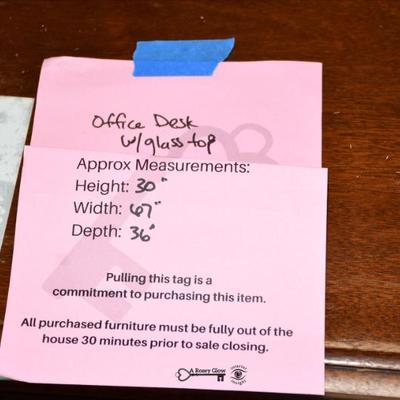 Office Desk
w/glass top
Approx Measurements:
Height: 30"
Width: 67"
Depth: 36"
Pulling this tag is a
commitment to purchasing this item.
All purchased furniture must be fully out of the
house 30 minutes prior to sale closing.
A Rosey Glow